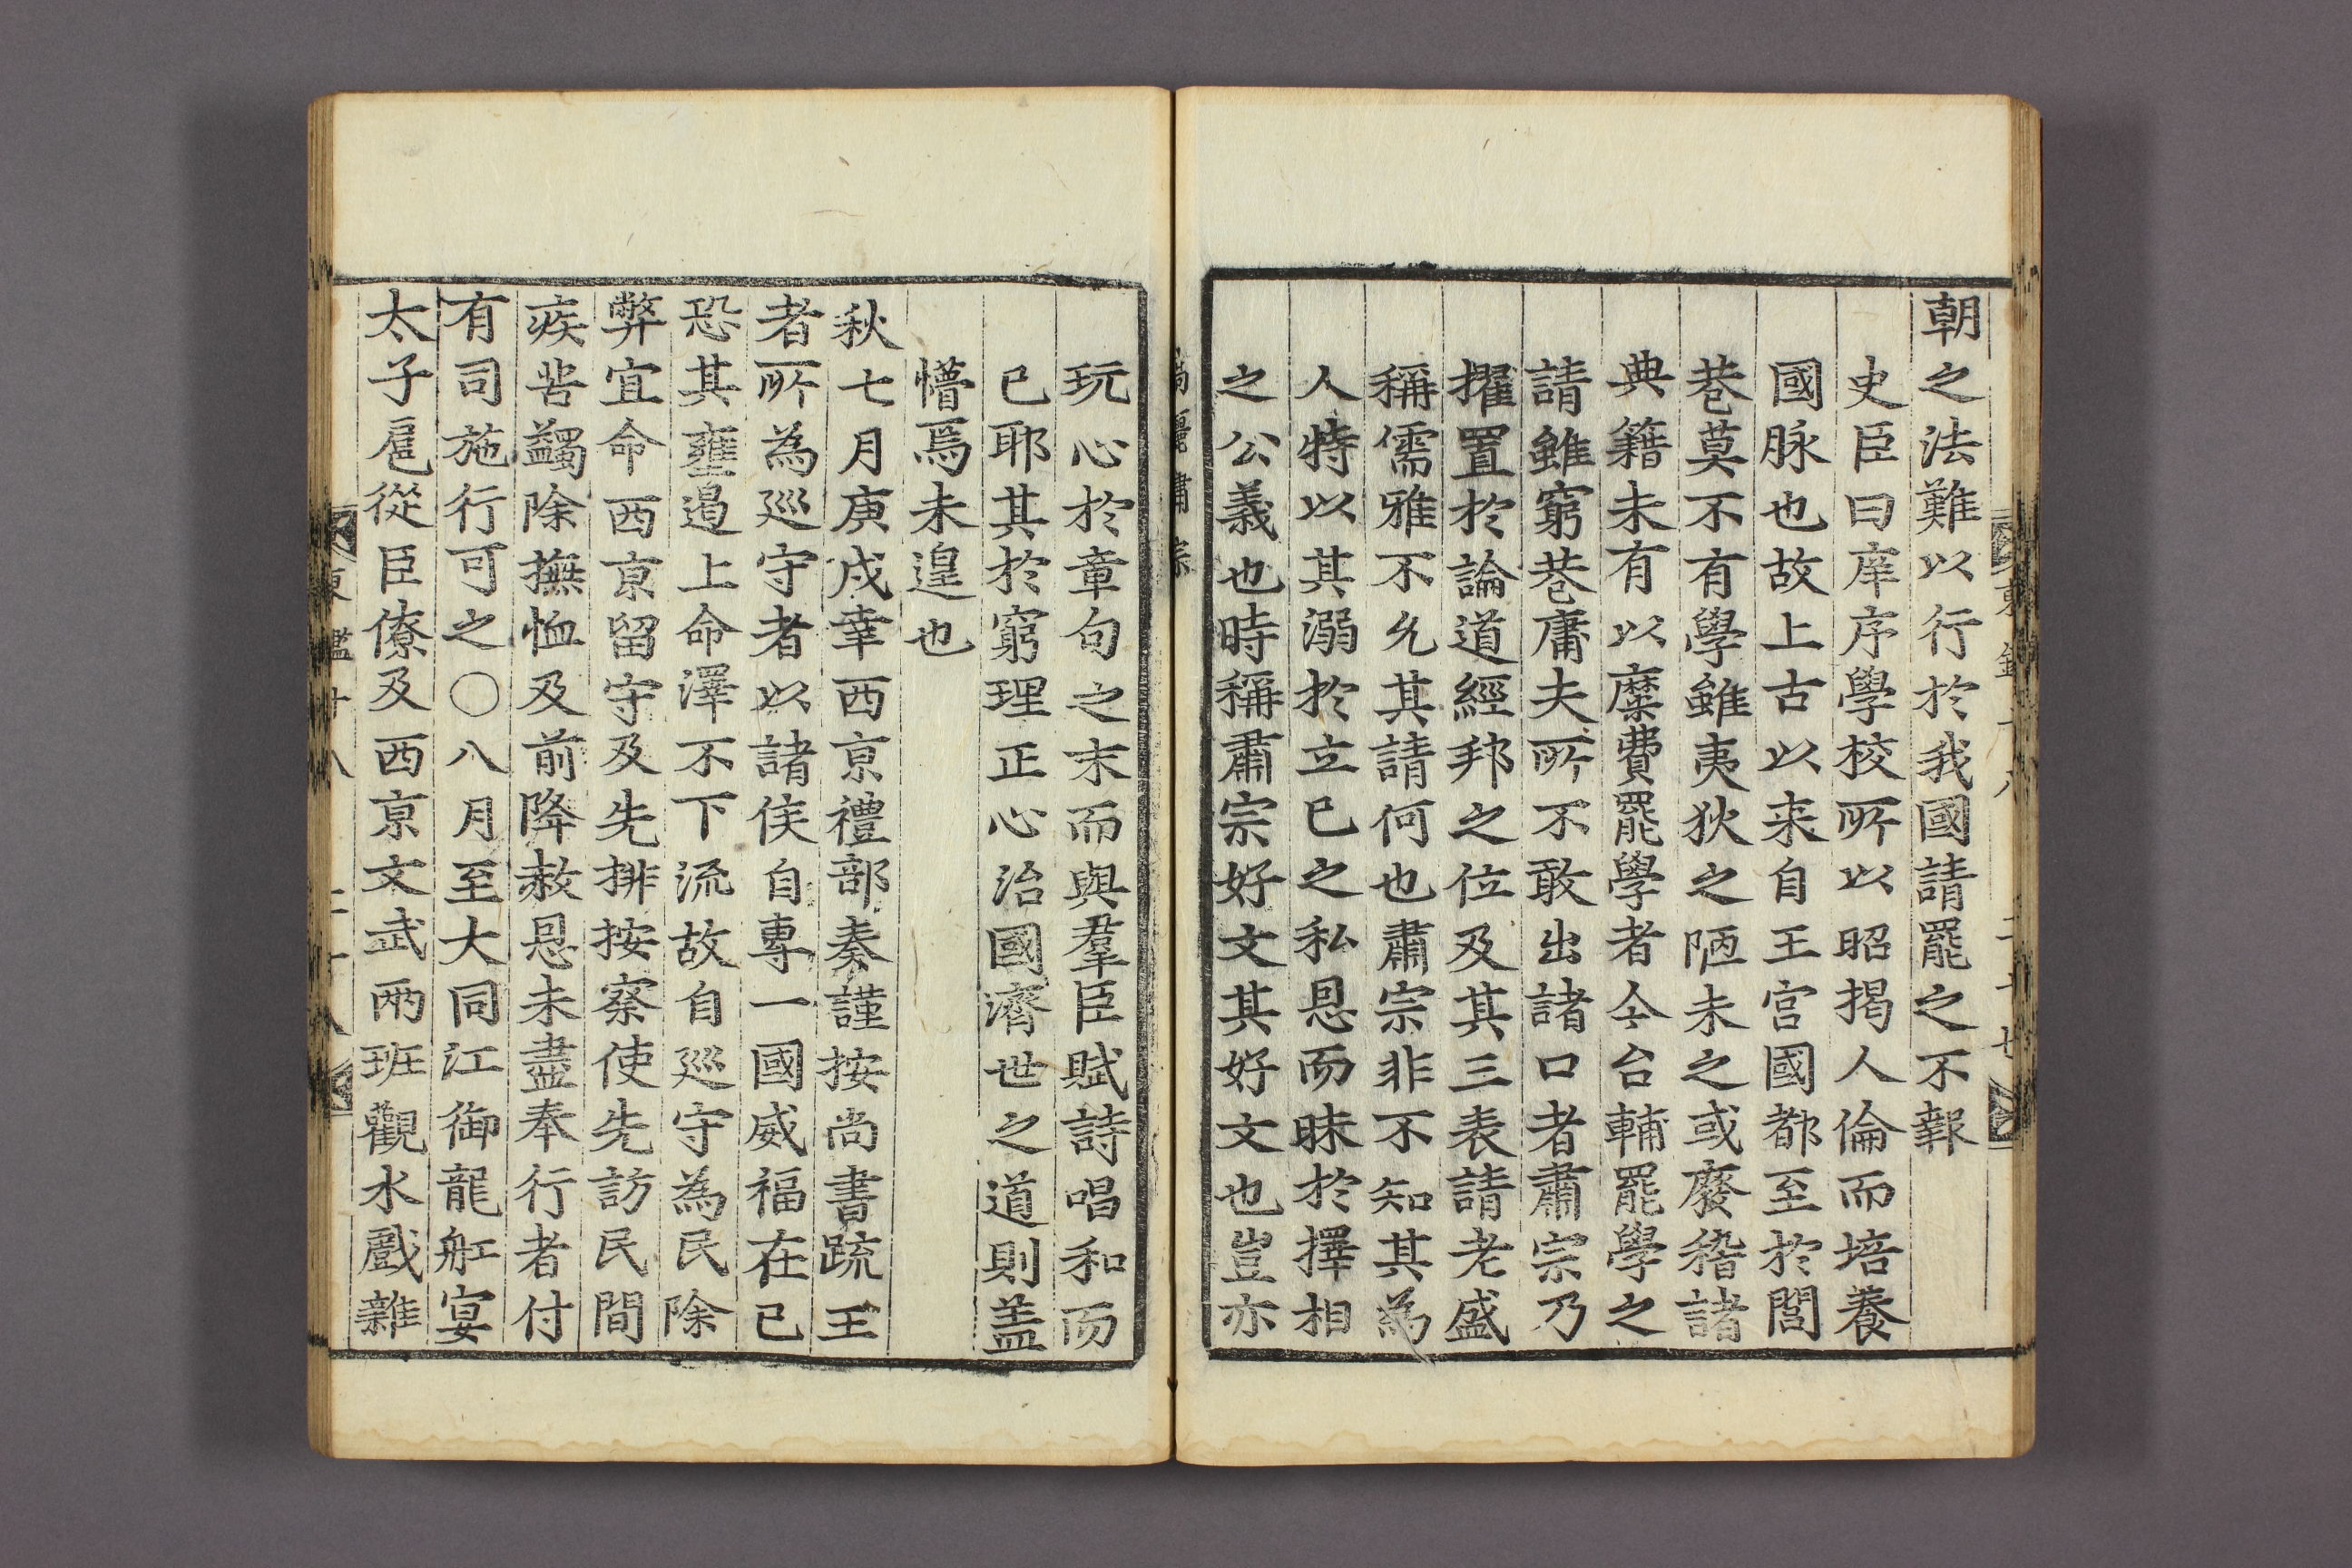 朝之法難以行於我國請罷之不報
史臣曰庠序學校所以昭揭人倫而培養
國脉也故上古以来自王宫國都至於閭
巷莫不有學雖夷狄之陋未之或廢稽諸
典籍未有以糜費罷學者今台輔罷學之
請雖窮巷庸夫所不敢出諸口者肅宗乃
擢置於論道經邦之位及其三表請老盛
稱儒雅不允其請何也肅宗非不知其為
人特以其溺於立已之私恩而昧於擇相
之公義也時稱肅宗好文其好文也豈亦
玩心於章句之末而與羣臣賦詩唱和而
已耶其於窮理正心治國濟世之道則盖
懵焉未遑也
秋七月庚戌幸西京禮部奏謹按尚書䟽王
者所為巡守者以諸侯自專一國威福在已
恐其壅遏上命澤不下流故自巡守為民除
弊宜命西京留守及先排按察使先訪民間
疾苦蠲除撫恤及前降赦恩未盡奉行者付
有司施行可之〇八月至大同江御龍舡宴
太子扈從臣僚及西京文武兩班觀水戲雜